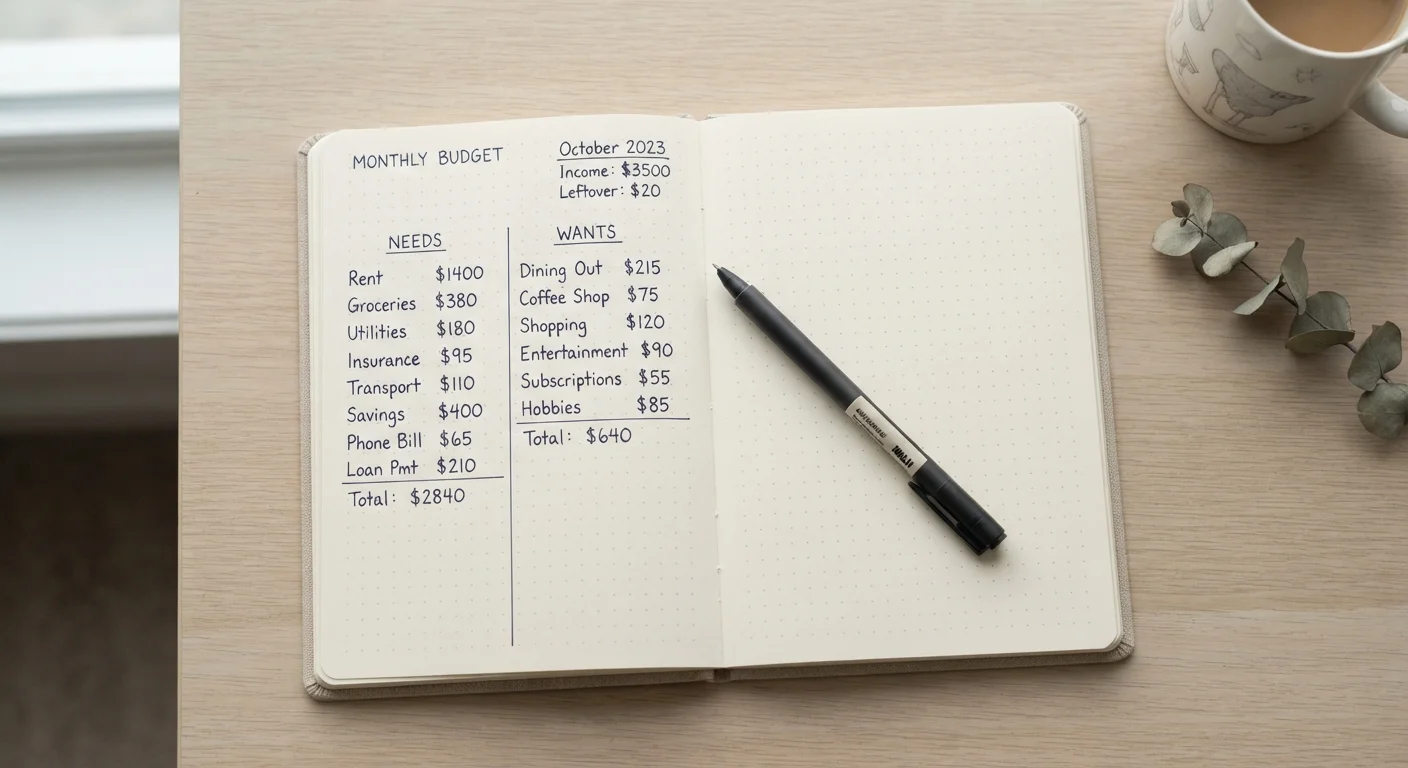 MONTHLY BUDGET
October 2023
Income: $3500
Leftover: $20
NEEDS
Rent $1400
Groceries $380
Utilities $180
Insurance $95
Transport $110
Savings $400
Phone Bill $65
Loan Pmt $210
Total: $2840
WANTS
Dining Out $215
Coffee Shop $75
Shopping $120
Entertainment $90
Subscriptions $55
Hobbies $85
Total: $640